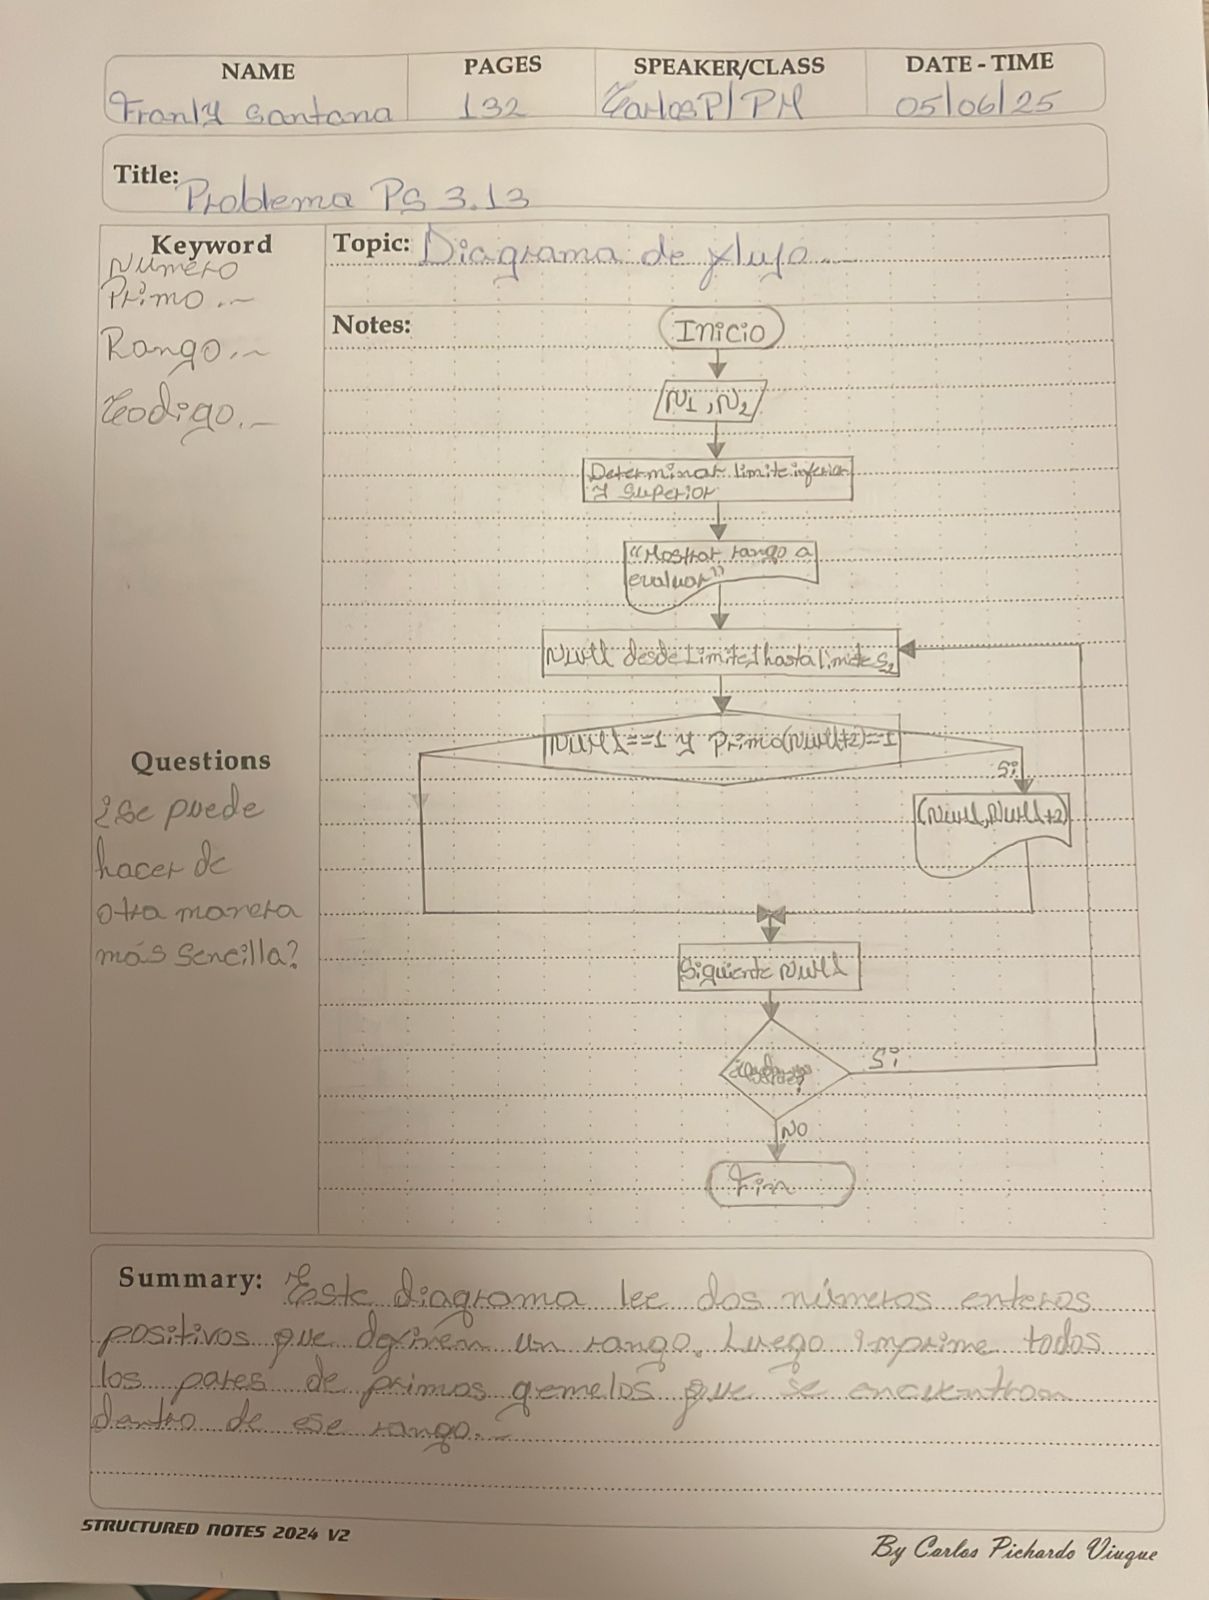 NAME
PAGES
SPEAKER/CLASS
DATE - TIME
Franly Santana
132
CarlosP/PM
05/06/25
Title: Problema PS 3.13
Keyword
Numero
Primo.-
Rango.-
Codigo.-
Topic: Diagrama de flujo.-
Notes:
Inicio
N1, N2
Determinar limite inferior
y superior
"Mostrar rango a
evaluar"
desde Limite1 hasta limite
==1 y Primo( +2)==1
Si
Siguiente
Si
NO
Fin
Questions
¿Se puede
hacer de
otra manera
más sencilla?
Summary: Este diagrama lee dos números enteros
positivos que definen un rango. Luego imprime todos
los pares de primos gemelos que se encuentran
dentro de ese rango.-
STRUCTURED NOTES 2024 V2
By Carlos Pichardo Viuque